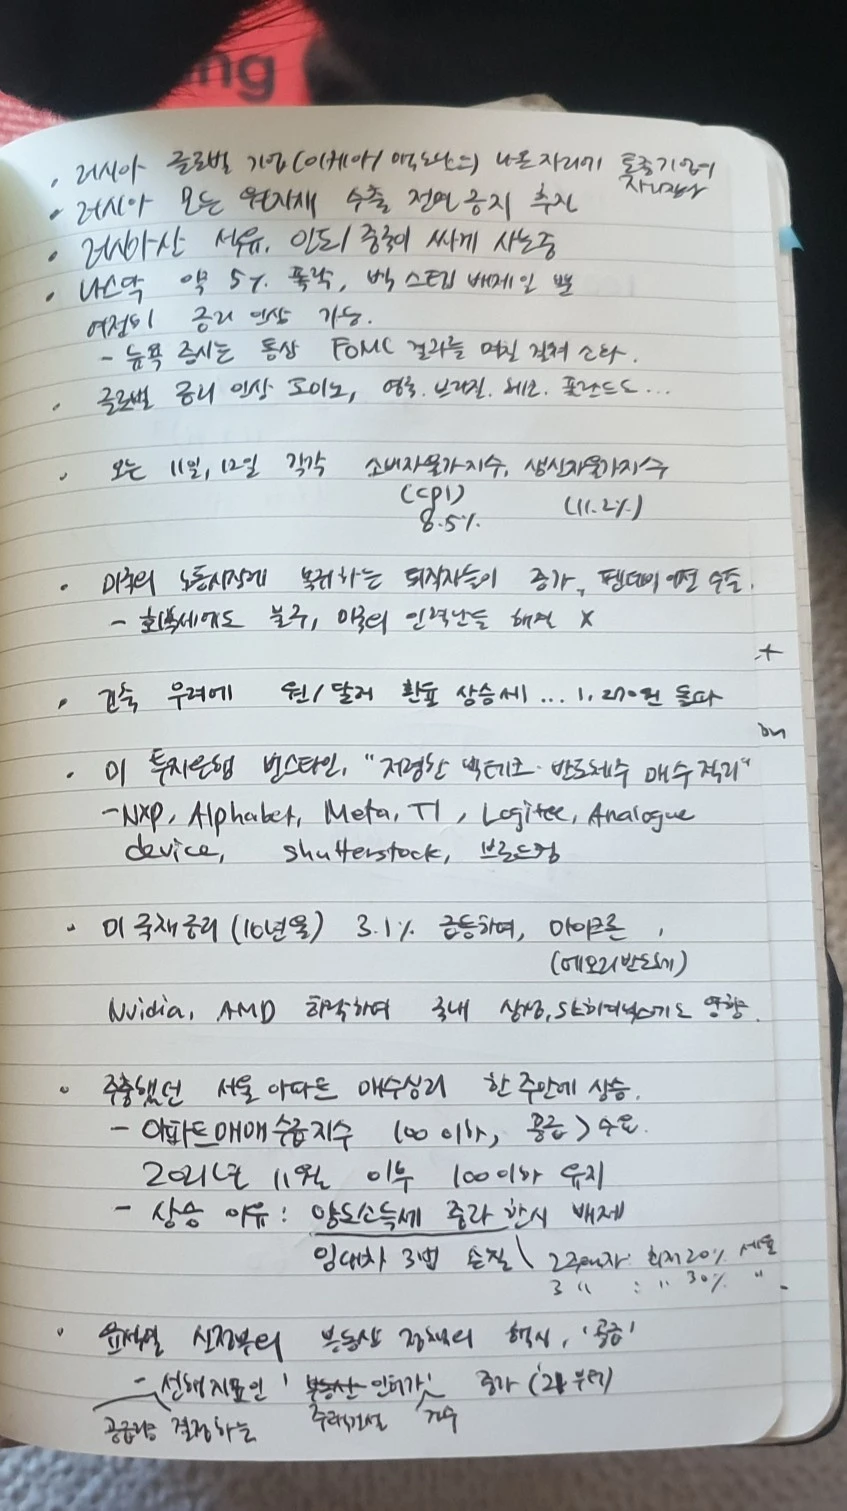 ng
· 러시아 글로벌 기업(이케아/맥도날드) 나온 자리에 토종기업이
자리잡아
· 러시아 모든 원자재 수출 전면 중지 추진
· 러시아산 석유, 인도/중국이 싸게 사는중
· 나스닥 약 5% 폭락, 빅스텝 베제일 뿐
여전히 금리 인상 가능.
- 뉴욕 증시는 통상 FOMC 결과를 며칠 걸쳐 소화.
· 글로벌 금리 인상 도미노, 영국. 브라질. 체코. 폴란드도...
· 오는 11일, 12일 각각 소비자물가지수, 생산자물가지수
(CPI) (11.2%)
8.5%
· 미국의 노동시장에 복귀하는 퇴직자들이 증가, 팬데믹 이전 수준.
- 회복세에도 불구, 미국의 인력난은 해결 X
+
· 긴축 우려에 원/달러 환율 상승세... 1,270원 돌파
· 미 투자은행 번스타인, "저렴한 빅테크·반도체주 매수 적기"
- NXP, Alphabet, Meta, TI, Logitec, Analogue
device, shutterstock, 브로드컴
· 미 국채금리(10년물) 3.1% 급등하며, 마이크론,
(메모리반도체)
Nvidia, AMD 하락하며 국내 삼성, SK하이닉스에도 영향.
· 주춤했던 서울 아파트 매수심리 한 주만에 상승.
- 아파트매매 수급지수 100 이하, 공급 > 수요.
2021년 11월 이후 100이하 유지
- 상승 이유: 양도소득세 중과 한시 배제
임대차 3법 손질 \ 2주택자: 최저 20% 세율
3 〃 : 〃 30% 〃
· 윤석열 신정부의 부동산 정책의 핵심, '공급'
- 선행지표인 '부동산 인허가' 증가 ('21부터)
공급량 결정하는 주택건설 건수